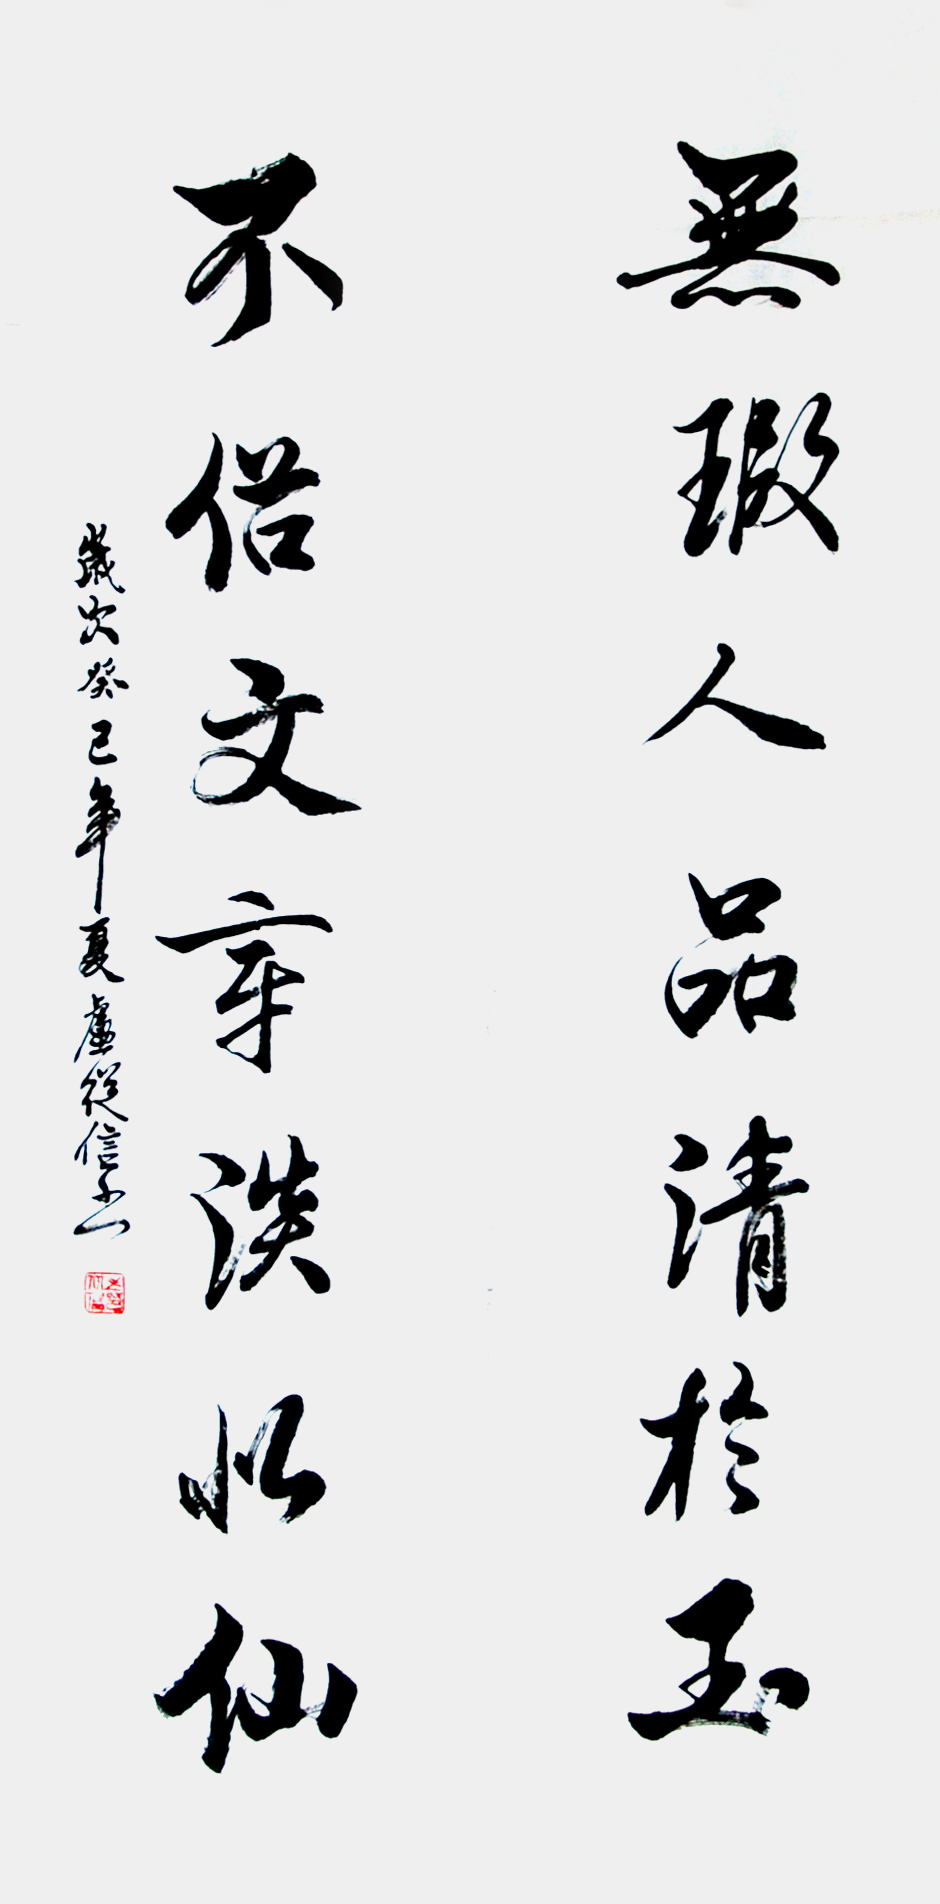 無瑕人品清於玉
不俗文章淡似仙
歲次癸巳年夏盧從信書